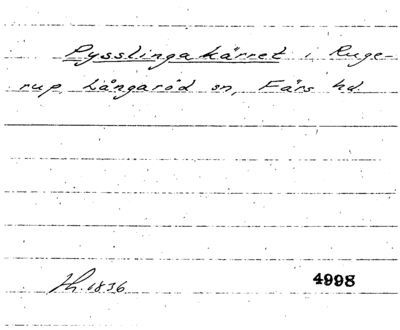 Pysslingakärret i Ruge-
rup Långaröd sn, Färs hd.
Th. 1836
4998